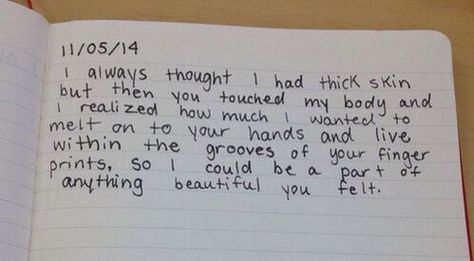 11/05/14
I always thought I had thick skin
but then you touched my body and
I realized how much I wanted to
melt on to your hands and live
within the grooves of your finger
prints, so I could be a part of
anything beautiful you felt.